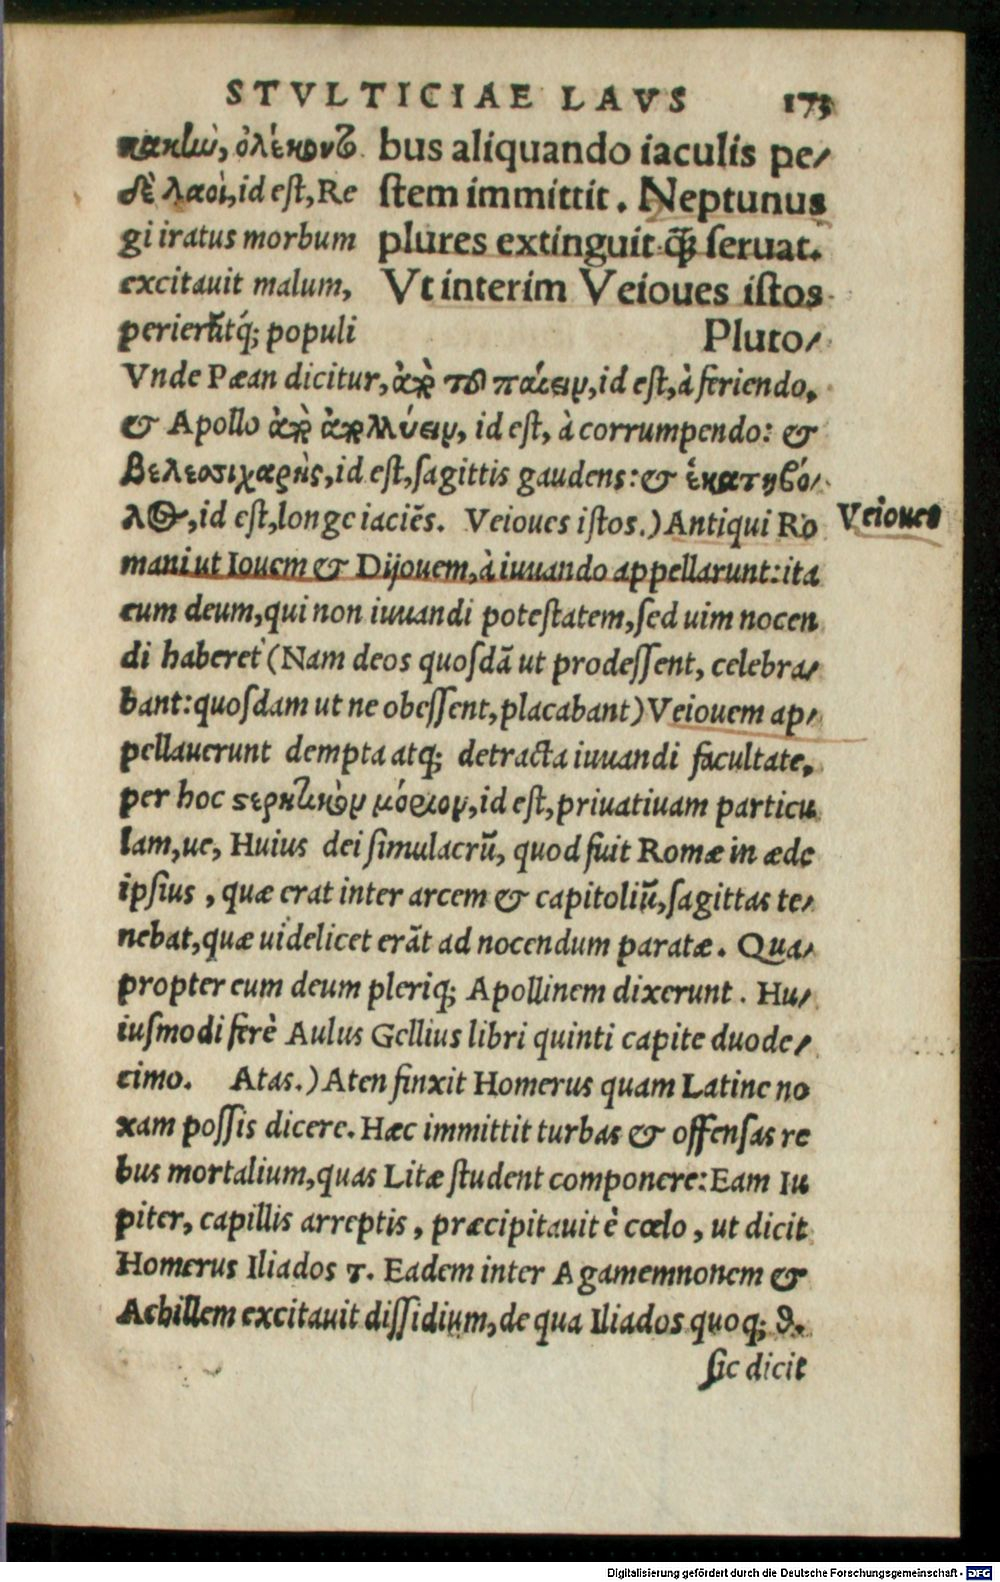 STVLTICIAE LAVS 173
bus aliquando iaculis pe/
stem immittit. Neptunus
plures extinguit q̃; seruat.
Vt interim Veioues istos
Pluto/
κακὼ, ὀλέκοντο
δὲ λαοὶ, id est, Re
gi iratus morbum
excitauit malum,
perierũtq́; populi
Vnde Pæan dicitur, ἀπὸ τοῦ παίειν, id est, à feriendo,
& Apollo ἀπὸ ἀπολλύειν, id est, à corrumpendo: &
βελεοσιχαρὴς, id est, sagittis gaudens: & ἑκατηβό/
λος, id est, longe iaciẽs. Veioues istos.) Antiqui Ro
Veioues
mani ut Iouem & Dijouem, à iuuando appellarunt: ita
eum deum, qui non iuuandi potestatem, sed uim nocen
di haberet (Nam deos quosdã ut prodessent, celebra/
bant: quosdam ut ne obessent, placabant) Veiouem ap/
pellauerunt dempta atq; detracta iuuandi facultate,
per hoc στερητικὸν μόριον, id est, priuatiuam particu
lam, ue, Huius dei simulacrũ, quod fuit Romæ in æde
ipsius, quæ erat inter arcem & capitoliũ, sagittas te/
nebat, quæ uidelicet erãt ad nocendum paratæ. Qua/
propter eum deum pleriq; Apollinem dixerunt. Hu/
iusmodi ferè Aulus Gellius libri quinti capite duode/
cimo. Atas.) Aten finxit Homerus quam Latine no
xam possis dicere. Hæc immittit turbas & offensas re
bus mortalium, quas Litæ student componere: Eam Iu
piter, capillis arreptis, præcipitauit è cœlo, ut dicit
Homerus Iliados τ. Eadem inter Agamemnonem &
Achillem excitauit dissidium, de qua Iliados quoq; ϑ.
sic dicit
Digitalisierung gefördert durch die Deutsche Forschungsgemeinschaft - DFG